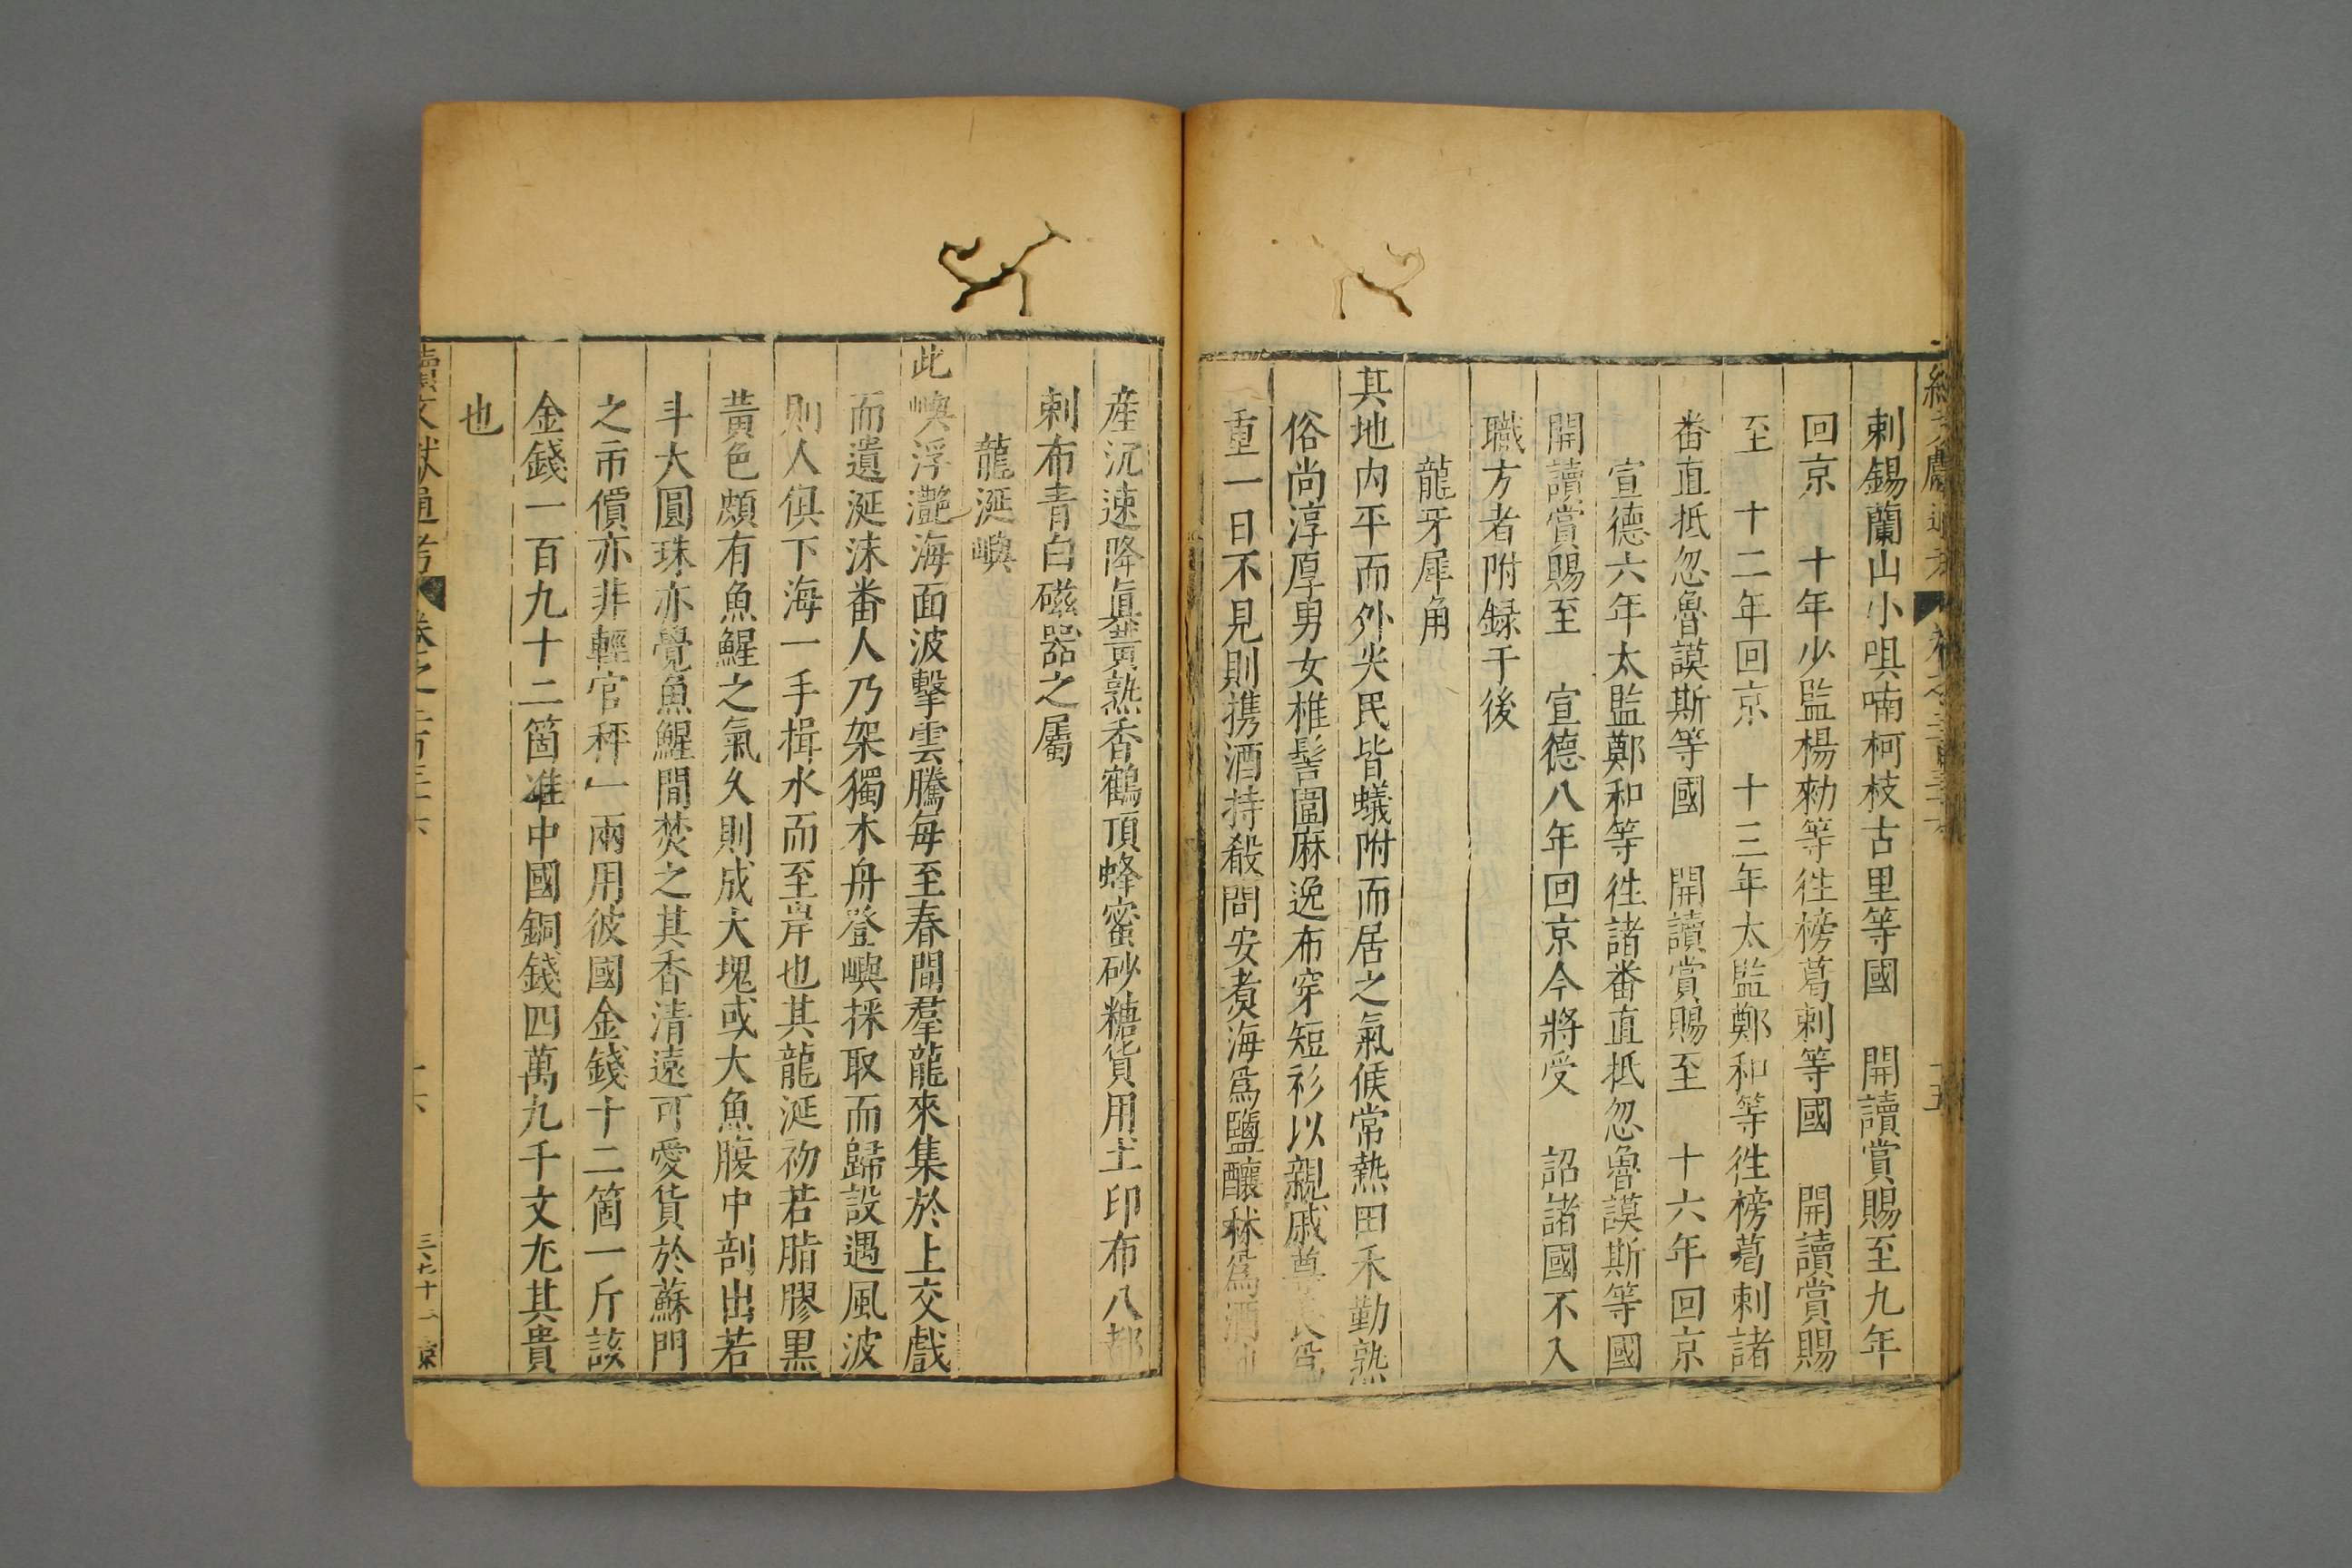 剌錫蘭山小唄喃柯枝古里等國　開讀賞賜至九年
回京　十年少監楊勑等徃榜葛剌等國　開讀賞賜
至　十二年回京　十三年太監鄭和等徃榜葛剌諸
畨直抵忽魯謨斯等國　開讀賞賜至　十六年回京
宣德六年太監鄭和等徃諸畨直抵忽魯謨斯等國
開讀賞賜至　宣德八年回京今將受　詔諸國不入
職方者附録于後
龍牙犀角
其地内平而外尖民皆蟻附而居之氣候常熱田禾勤熟
俗尚淳厚男女椎髻圍麻逸布穿短衫以親戚尊長爲
重一日不見則携酒持殽問安煮海爲鹽釀秫爲酒
産沉速降眞黄熟香鶴頂蜂蜜砂糖貨用土印布八都
剌布青白磁器之屬
龍涎嶼
此嶼浮灔海面波擊雲騰每至春間羣龍來集於上交戲
而遺涎沫畨人乃架獨木舟登嶼採取而歸設遇風波
則人俱下海一手揖水而至岸也其龍涎初若脂膠黒
黄色頗有魚鯹之氣久則成大塊或大魚腹中剖出若
斗大圓珠亦覺魚鯹間焚之其香清遠可愛貨於蘇門
之市價亦非輕官秤一兩用彼國金錢十二箇一斤該
金錢一百九十二箇准中國銅錢四萬九千文尤其貴
也
續文獻通考　卷之二百三十六